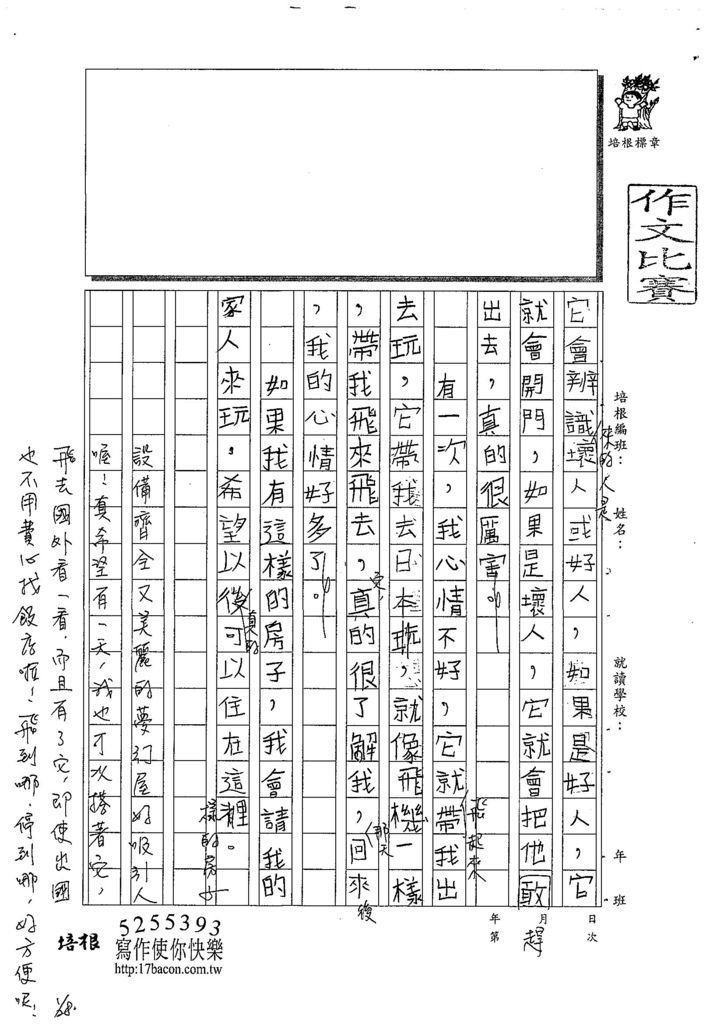 培根標章
作文比賽
培根編班：
姓名：
就讀學校：
年 班
它會辨識壞人或好人，如果是好人，它
來的人是
就會開門，如果是壞人，它就會把他敢
趕
出去，真的很厲害。
有一次，我心情不好，它就帶我出
飛起來
去玩，它帶我去日本玩，就像飛機一樣
，帶我飛來飛去，真的很了解我，回來
那天
後
，我的心情好多了。
如果我有這樣的房子，我會請我的
家人來玩。希望以後可以住在這裡。
真的
樣的房子
設備齊全又美麗的夢幻屋好吸引人
喔！真希望有一天，我也可以搭著它，
飛去國外看一看，而且有了它，即使出國
也不用費心找飯店啦！飛到哪，停到哪，好方便呢！
日 月 年
次 第
培根
5255393
寫作使你快樂
http:17bacon.com.tw